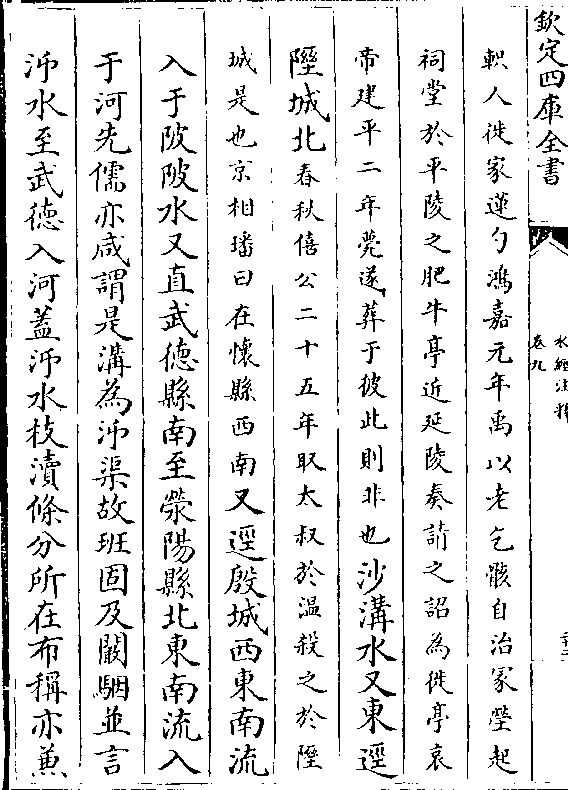 欽定四庫全書
水經注釋
卷九
軹人徙家蓮勺鴻嘉元年禹以老乞骸自治冢塋起
祠堂於平陵之肥牛亭近延陵奏請之詔為徙亭哀
帝建平二年薨遂葬于彼此則非也沙溝水又東逕
隰城北春秋僖公二十五年取太叔於溫殺之於隰
城是也京相璠曰在懷縣西南又逕殷城西東南流
入于陂陂水又直武德縣南至滎陽縣北東南流入
于河先儒亦咸謂是溝為泲渠故班固及闞駰並言
泲水至武德入河蓋泲水枝瀆條分所在布稱亦兼